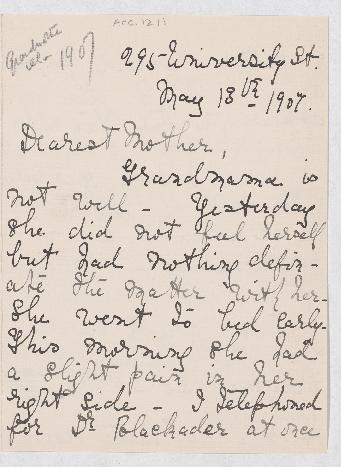 Acc. 1211
Grandmother
ill - 1907
295 University St.
May 13th 1907.
Dearest Mother,
Grandmama is
not well - Yesterday
she did not feel herself
but had nothing defin-
ate the matter with her -
She went to bed early -
This morning she had
a slight pain in her
right side - I telephoned
for Dr Blackader at once